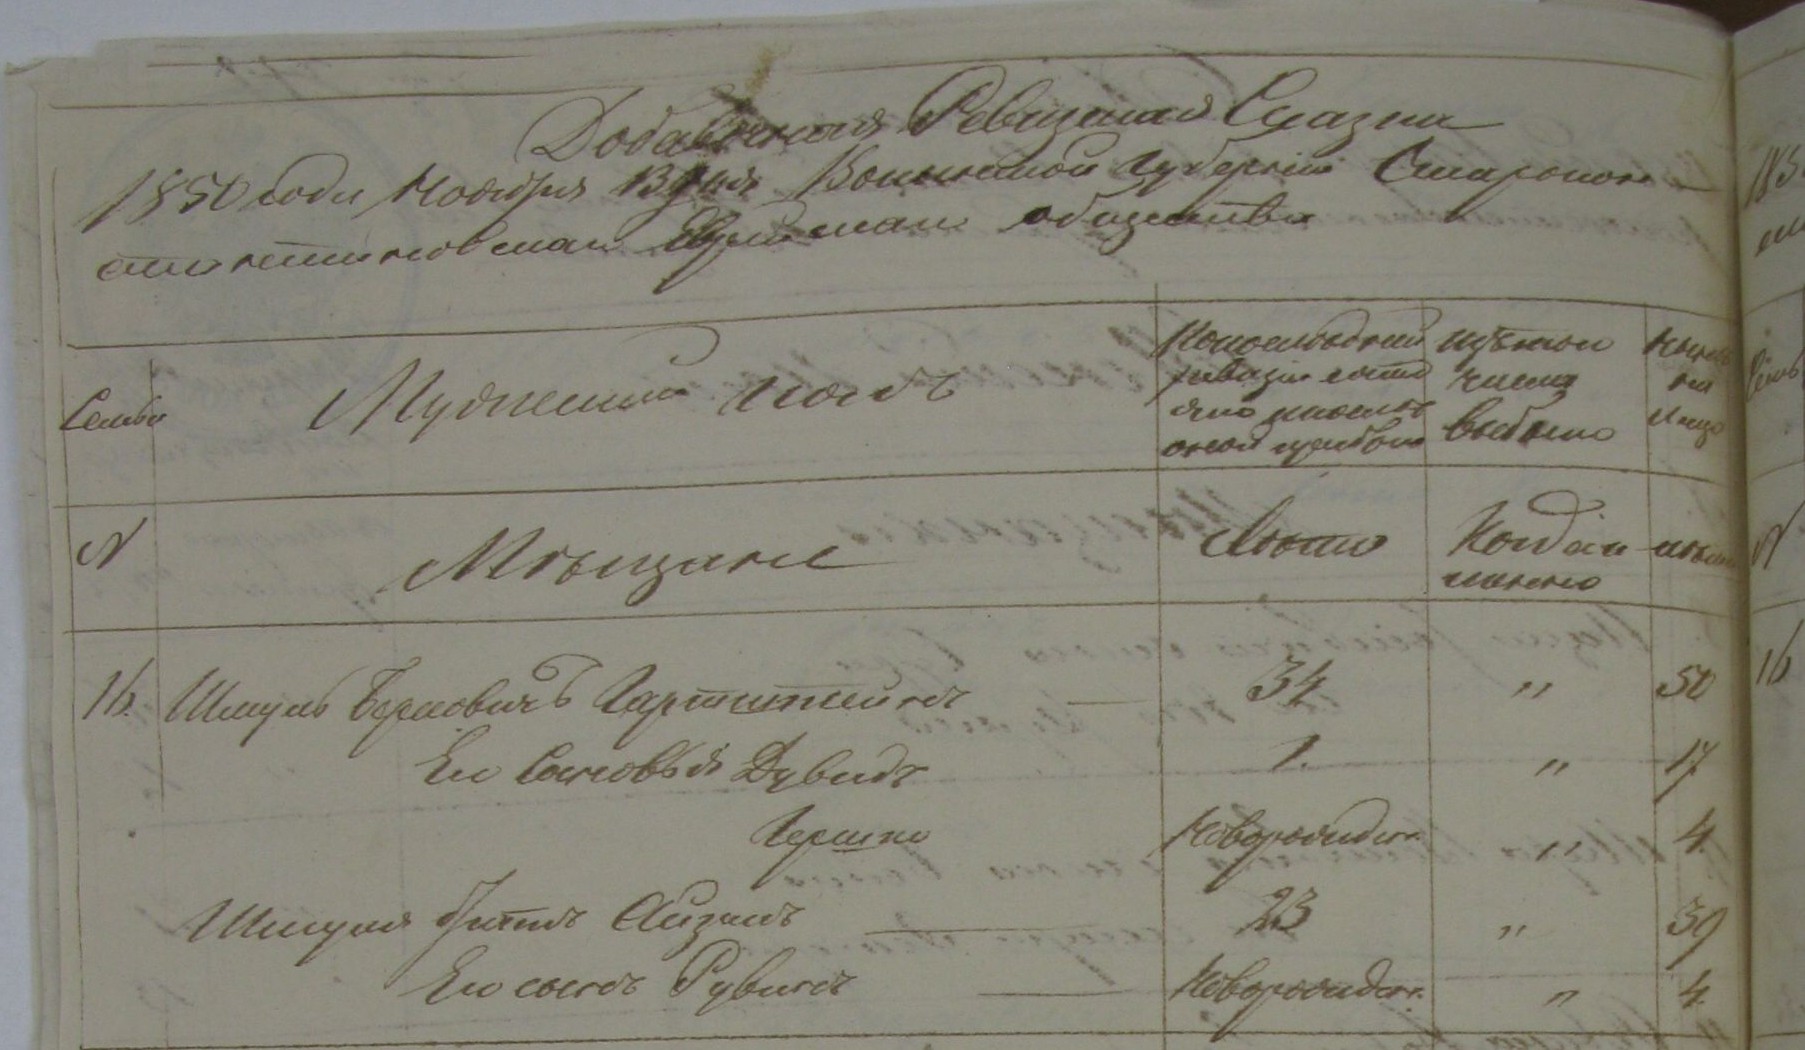 Добавочная Ревизская Сказка
1850 года Ноября 13 дня Волынской Губернии Старокон-
стантиновскаго Еврейскаго общества
Семьи
Мужескій полъ
По последней
ревизіи состо
яло и после
оной прибыло
Изъ того
числа
выбыло
Ныне
на
лицо
N
Мѣщане
Лета
Когда и-
менно
лета
16.
Шмуль Берковичъ Гартштейнъ
34
"
50
Его Сыновья Дувидъ
1.
"
17
Гершко
Новорожден.
"
4.
Шмуля братъ Айзикъ
23
"
39
Его сынъ Рувинъ
Новорожден.
"
4.
185
Семьи
N
16